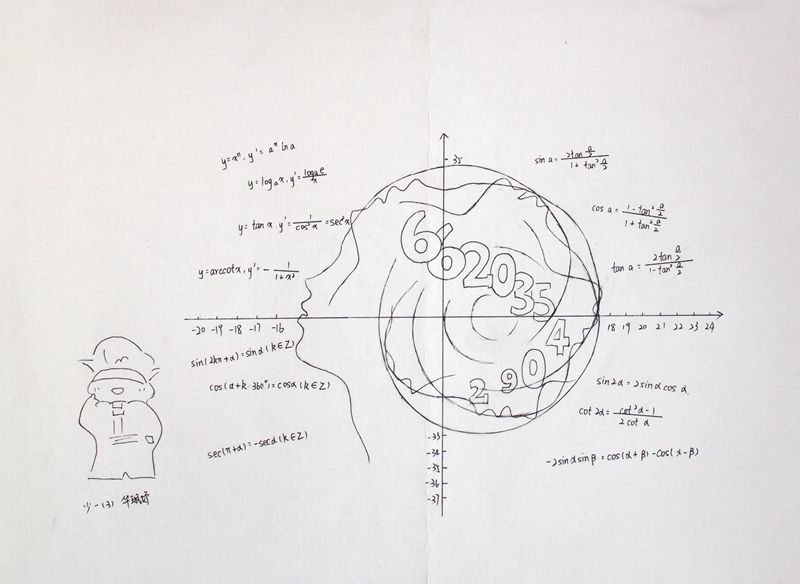 y=xⁿ, y'= aˣ ln a
y=logₐx, y'= logₐe/x
y= tan x, y'= 1/cos²x =sec²x
y=arccotx, y'= - 1/1+x²
35
sin a= 2tan a/2 / 1+ tan² a/2
cos a= 1-tan² a/2 / 1+tan² a/2
tan a= 2tan a/2 / 1-tan² a/2
6 6 2 0 3 5
4 0 9 2
-20 -19 -18 -17 -16
18 19 20 21 22 23 24
sin(2kπ+α)=sinα(k∈Z)
cos(α+k·360°)=cosα(k∈Z)
sec(π+α)=-secα(k∈Z)
sin2α=2sinαcosα
cot2α= cot²α-1 / 2cot α
-2sinαsinβ=cos(α+β)-cos(α-β)
-33
-34
-35
-36
-37
少一(3)